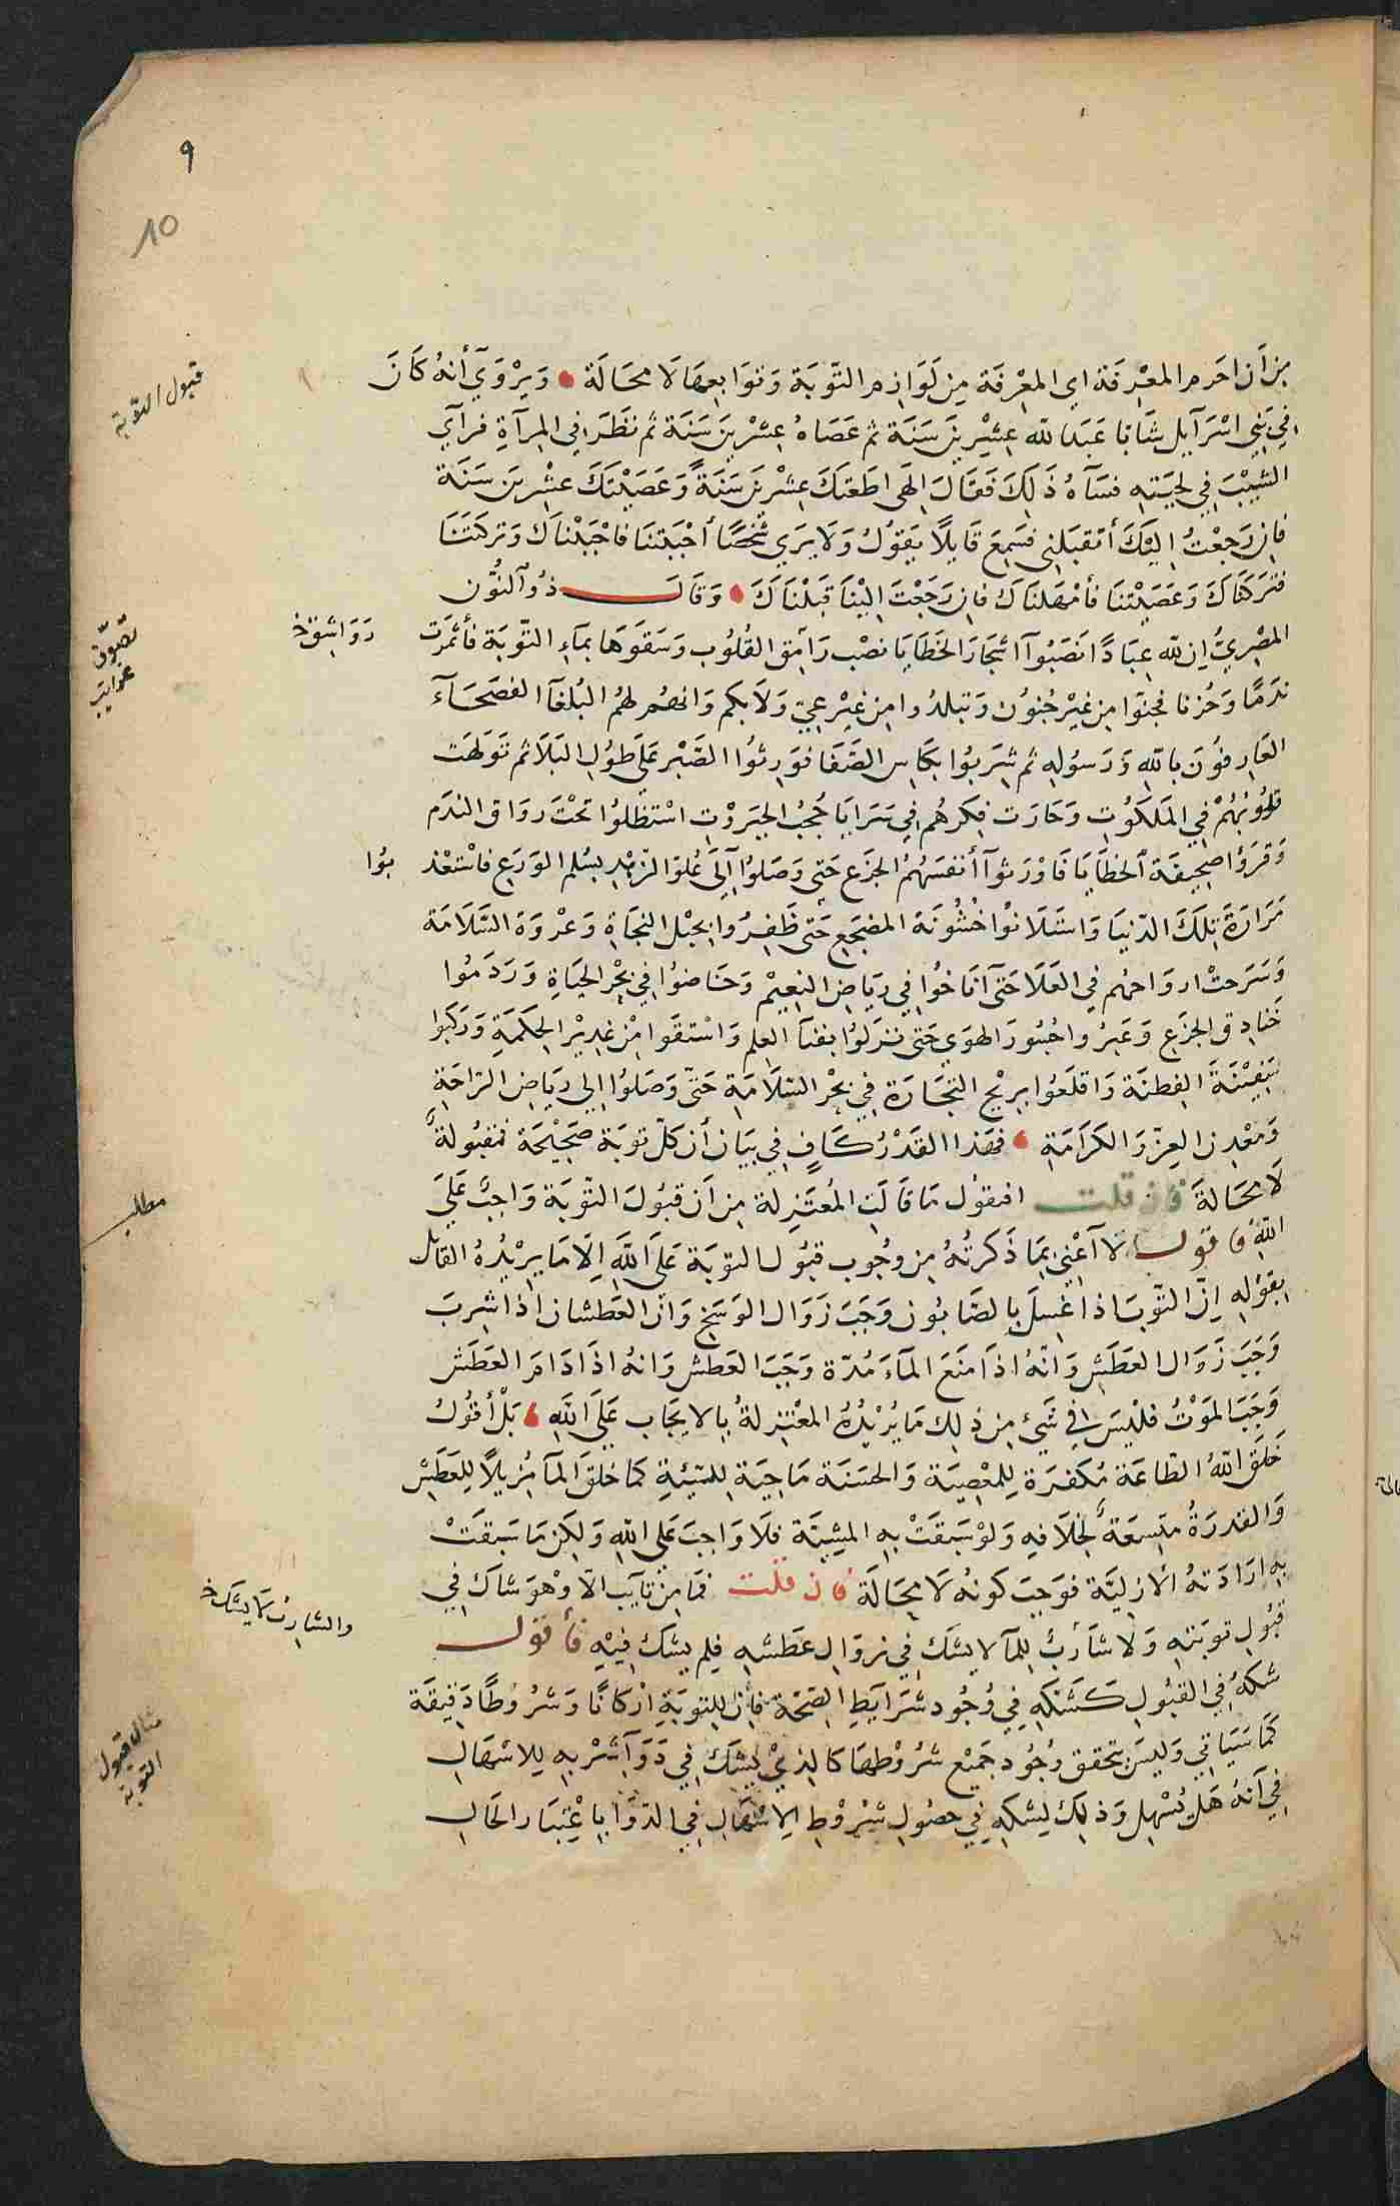 ٩
10
من أن احرم المعرفة اي المعرفة من لوازم التوبة وتوابعها لا محالة ويروي أنه كان
في بني اسرآيل شابا عبد الله عشرين سنة ثم عصاه عشرين سنة ثم نظر في المرآة فرآي
الشيب في لحيته فسآه ذلك فقال الهي اطعتك عشرين سنة وعصيتك عشرين سنة
فان رجعت اليك أتقبلني فسمع قايلا يقول ولا يري شخصا أحببتنا فاحببناك وتركتنا
فتركناك وعصيتنا فأمهلناك فان رجعت الينا قبلناك وقال ذو آلنون
المصري إن لله عبادا نصبوا اشجار الخطايا نصب رأمق القلوب وسقوها بمآء التوبة فأثمرت
ندما وحزنا فجنوا من غير جنون وتبلدوا من غير عي ولا بكم وانهم لهم البلغآ الفصحآء
العارفون بالله ورسوله ثم شربوا بكاس الصفا فورثوا الصبر على طول البلا ثم تولهت
قلوبهم في الملكوت وحارت فكرهم في سرايا حجب الجبروت استظلوا تحت رواق الندم
وقرؤا صحيفة الخطايا فاورثوآ أنفسهم الجزع حتى وصلوا آلى علو الزهد بسلم الورع فاستعذ بوا
مرارة تلك الدنيا واستلانوا خشونة المضجع حتى ظفروا بحبل النجاة وعروة السلامة
وسرحت ارواحهم في العلا حتى آناخوا في رياض النعيم وخاضوا في بحر الحياة وردموا
خنادق الجزع وعبروا جسور الهوي حتى نزلوا بفنآ العلم واستقوا من غدير الحكمة وركبوا
سفينة الفطنة واقلعوا بريح التجارة في بحر السلامة حتى وصلوا الي رياض الراحة
ومعدن العز والكرامة فهذا القدر كاف في بيان أن كل توبة صحيحة فمقبولة
لا محالة فإن قلت افتقول ما قالت المعتزلة من أن قبول التوبة واجب على
الله فاقول لا آعني بما ذكرته من وجوب قبول التوبة على الله إلا ما يريده القائل
بقوله إن الثوب اذا غسل بالصابون وجب زوال الوسخ وان العطشان اذا شرب
وجب زوال العطش وانه اذا منع المآء مدة وجب العطش وانه اذا دام العطش
وجب الموت فليس في شيء من ذلك ما يريده المعتزلة بالايجاب على الله بل أقول
خلق الله الطاعة مكفرة للمعصية والحسنة ماحية للسيئة كما خلق المآ مزيلا للعطش
والقدرة متسعة لخلافه ولو سبقت به المشيئة فلا واجب على الله ولكن ما سبقت
به ارادته الازلية فوجب كونه لا محالة فان قلت فما من تآيب الا وهو شاك في
قبول توبته ولا شارب للمآ لا يشك في زوال عطشه فلم يشك فيه فأقول
شكه في القبول كشكه في وجود شرايط الصحة فإن للتوبة اركانا وشروطا دقيقة
كما سياتي وليس يتحقق وجود جميع شروطها كالذي يشك في دوآ شربه للاسهال
في آنه هل يسهل وذلك لشكه في حصول شروط الاسهال في الدوا باعتبار الحال
قبول التوبة
ذو اشق خ
تصوف
غرايب
مطلب
والشارب لا يشك خ
مثال قبول
التوبة